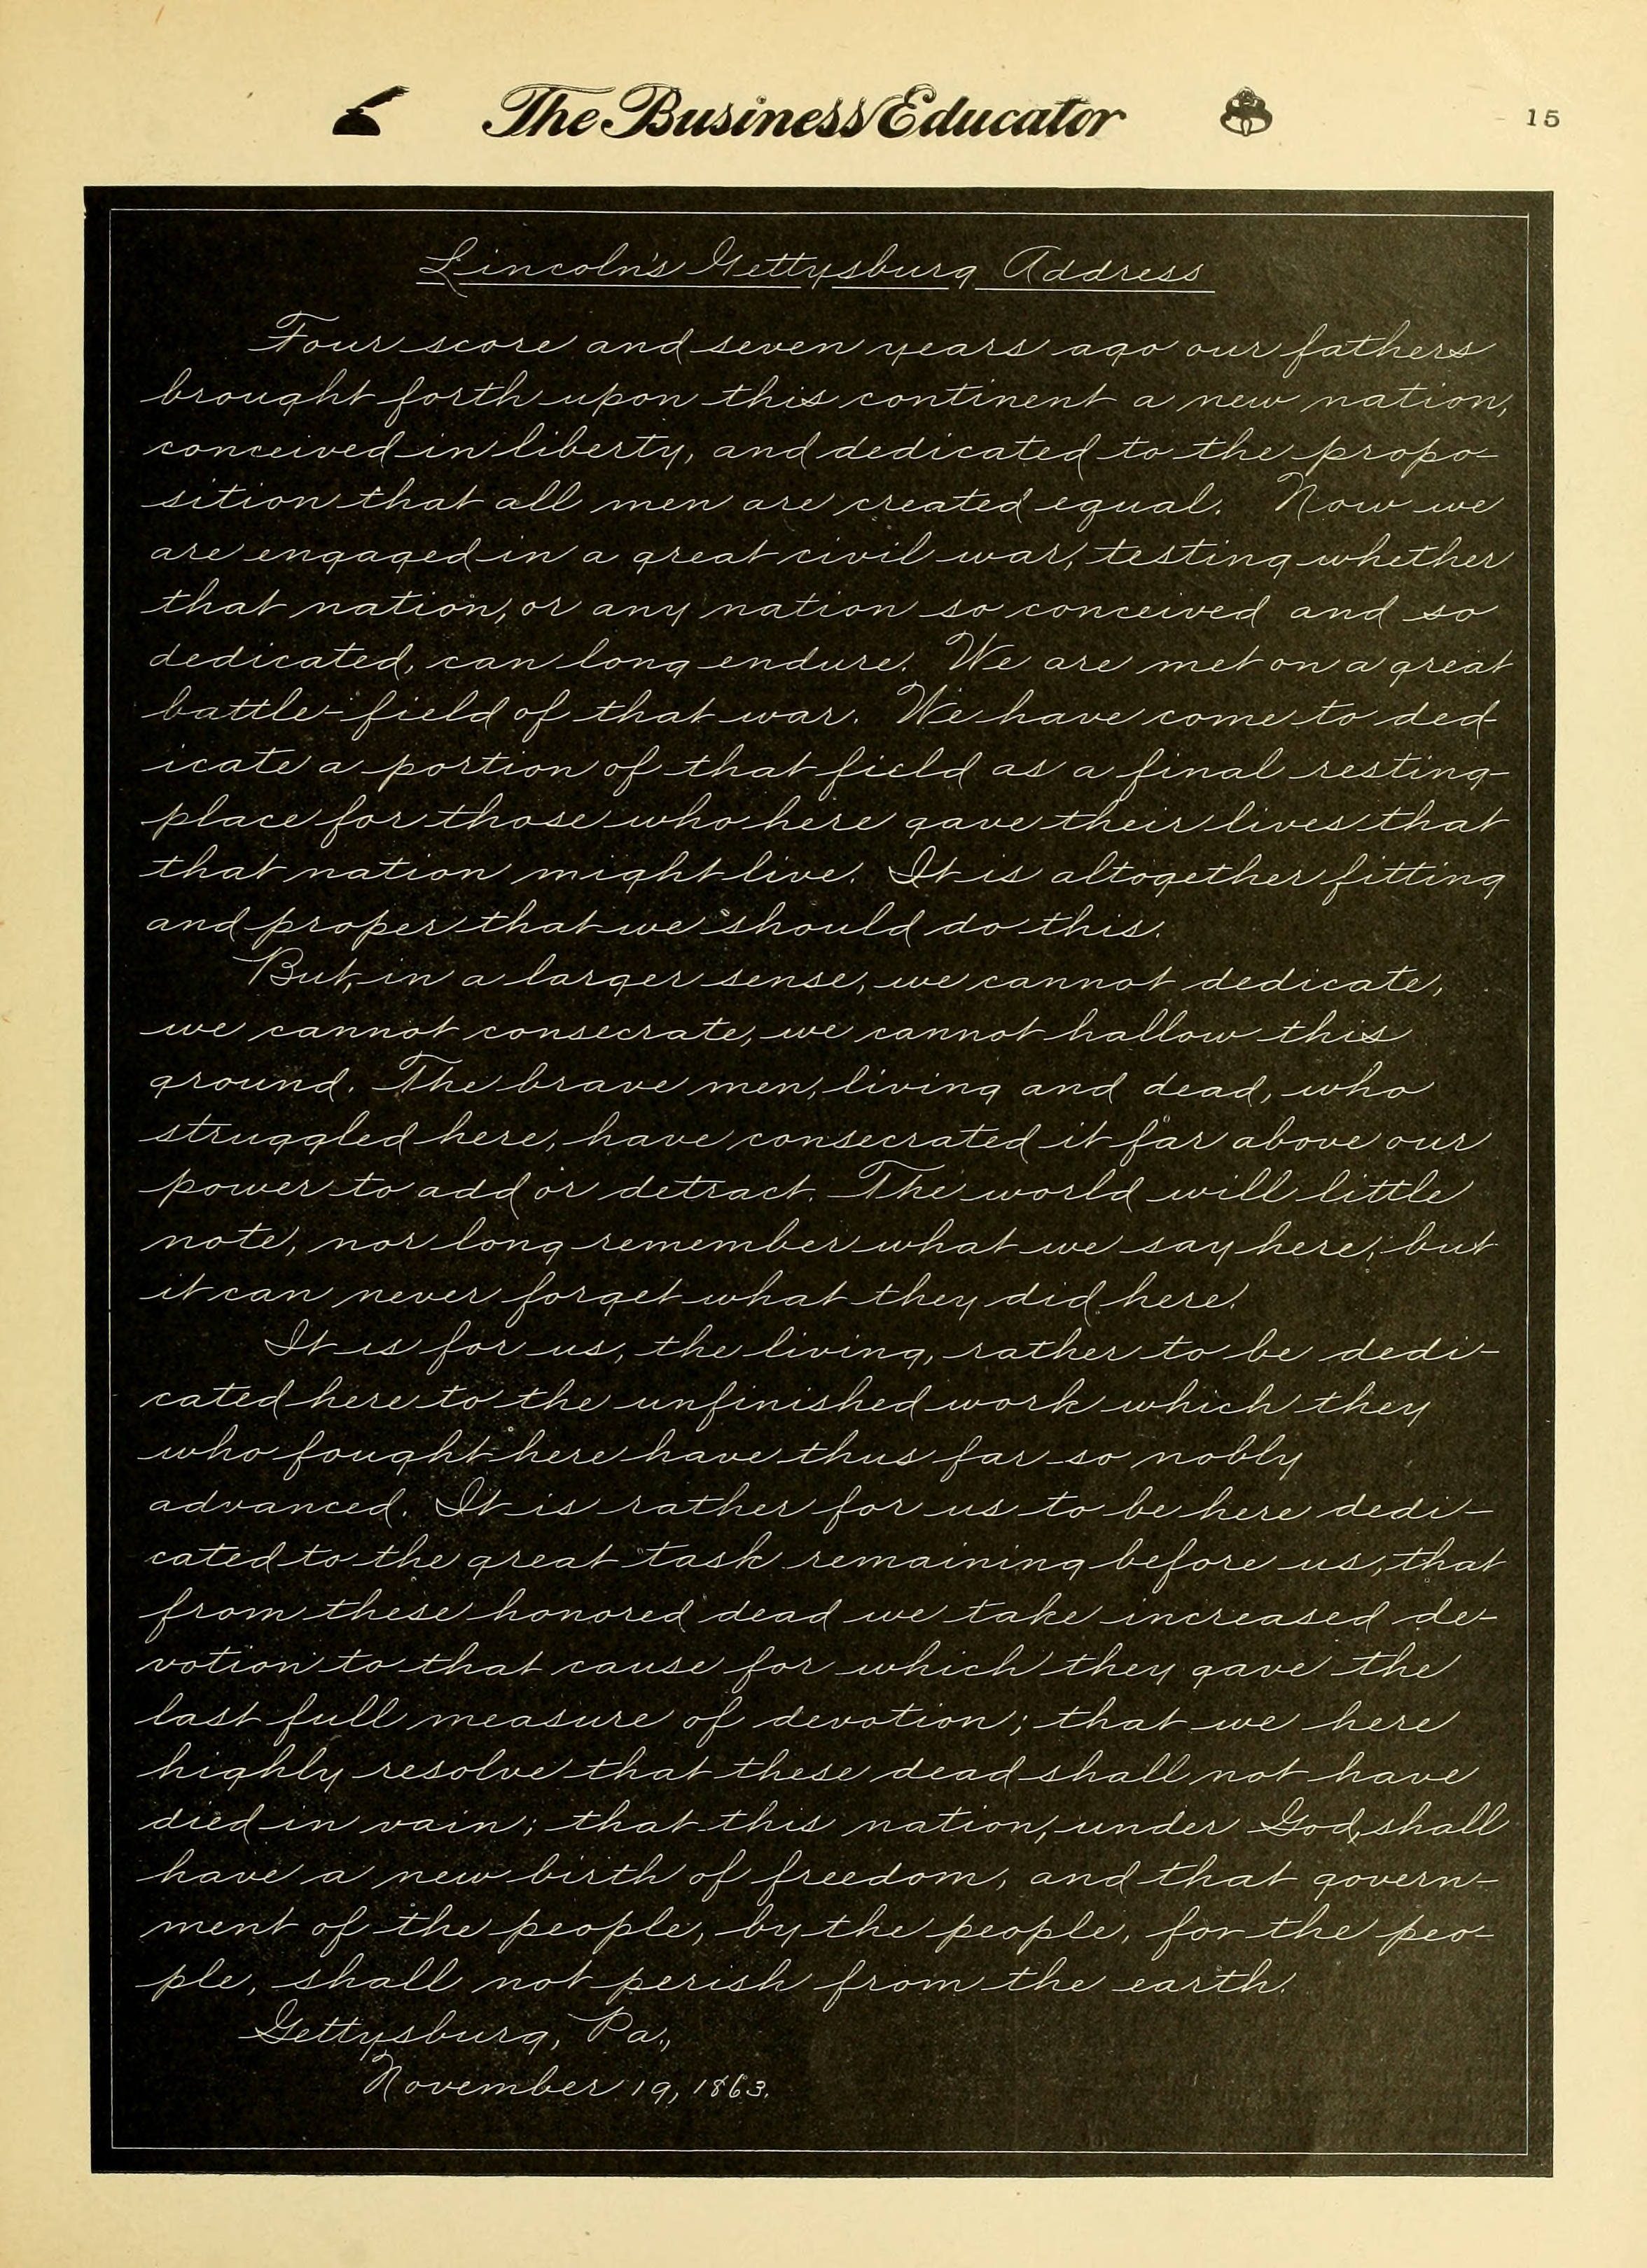 The Business Educator 15
Lincoln's Gettysburg Address
Four score and seven years ago our fathers
brought forth upon this continent a new nation,
conceived in liberty, and dedicated to the propo-
sition that all men are created equal. Now we
are engaged in a great civil war, testing whether
that nation, or any nation so conceived and so
dedicated, can long endure. We are met on a great
battle-field of that war. We have come to ded-
icate a portion of that field as a final resting-
place for those who here gave their lives that
that nation might live. It is altogether fitting
and proper that we should do this.
But, in a larger sense, we cannot dedicate,
we cannot consecrate, we cannot hallow this
ground. The brave men, living and dead, who
struggled here, have consecrated it far above our
power to add or detract. The world will little
note, nor long remember what we say here, but
it can never forget what they did here.
It is for us, the living, rather to be dedi-
cated here to the unfinished work which they
who fought here have thus far so nobly
advanced. It is rather for us to be here dedi-
cated to the great task remaining before us, that
from these honored dead we take increased de-
votion to that cause for which they gave the
last full measure of devotion; that we here
highly resolve that these dead shall not have
died in vain; that this nation, under God, shall
have a new birth of freedom, and that govern-
ment of the people, by the people, for the peo-
ple, shall not perish from the earth.
Gettysburg, Pa.,
November 19, 1863.